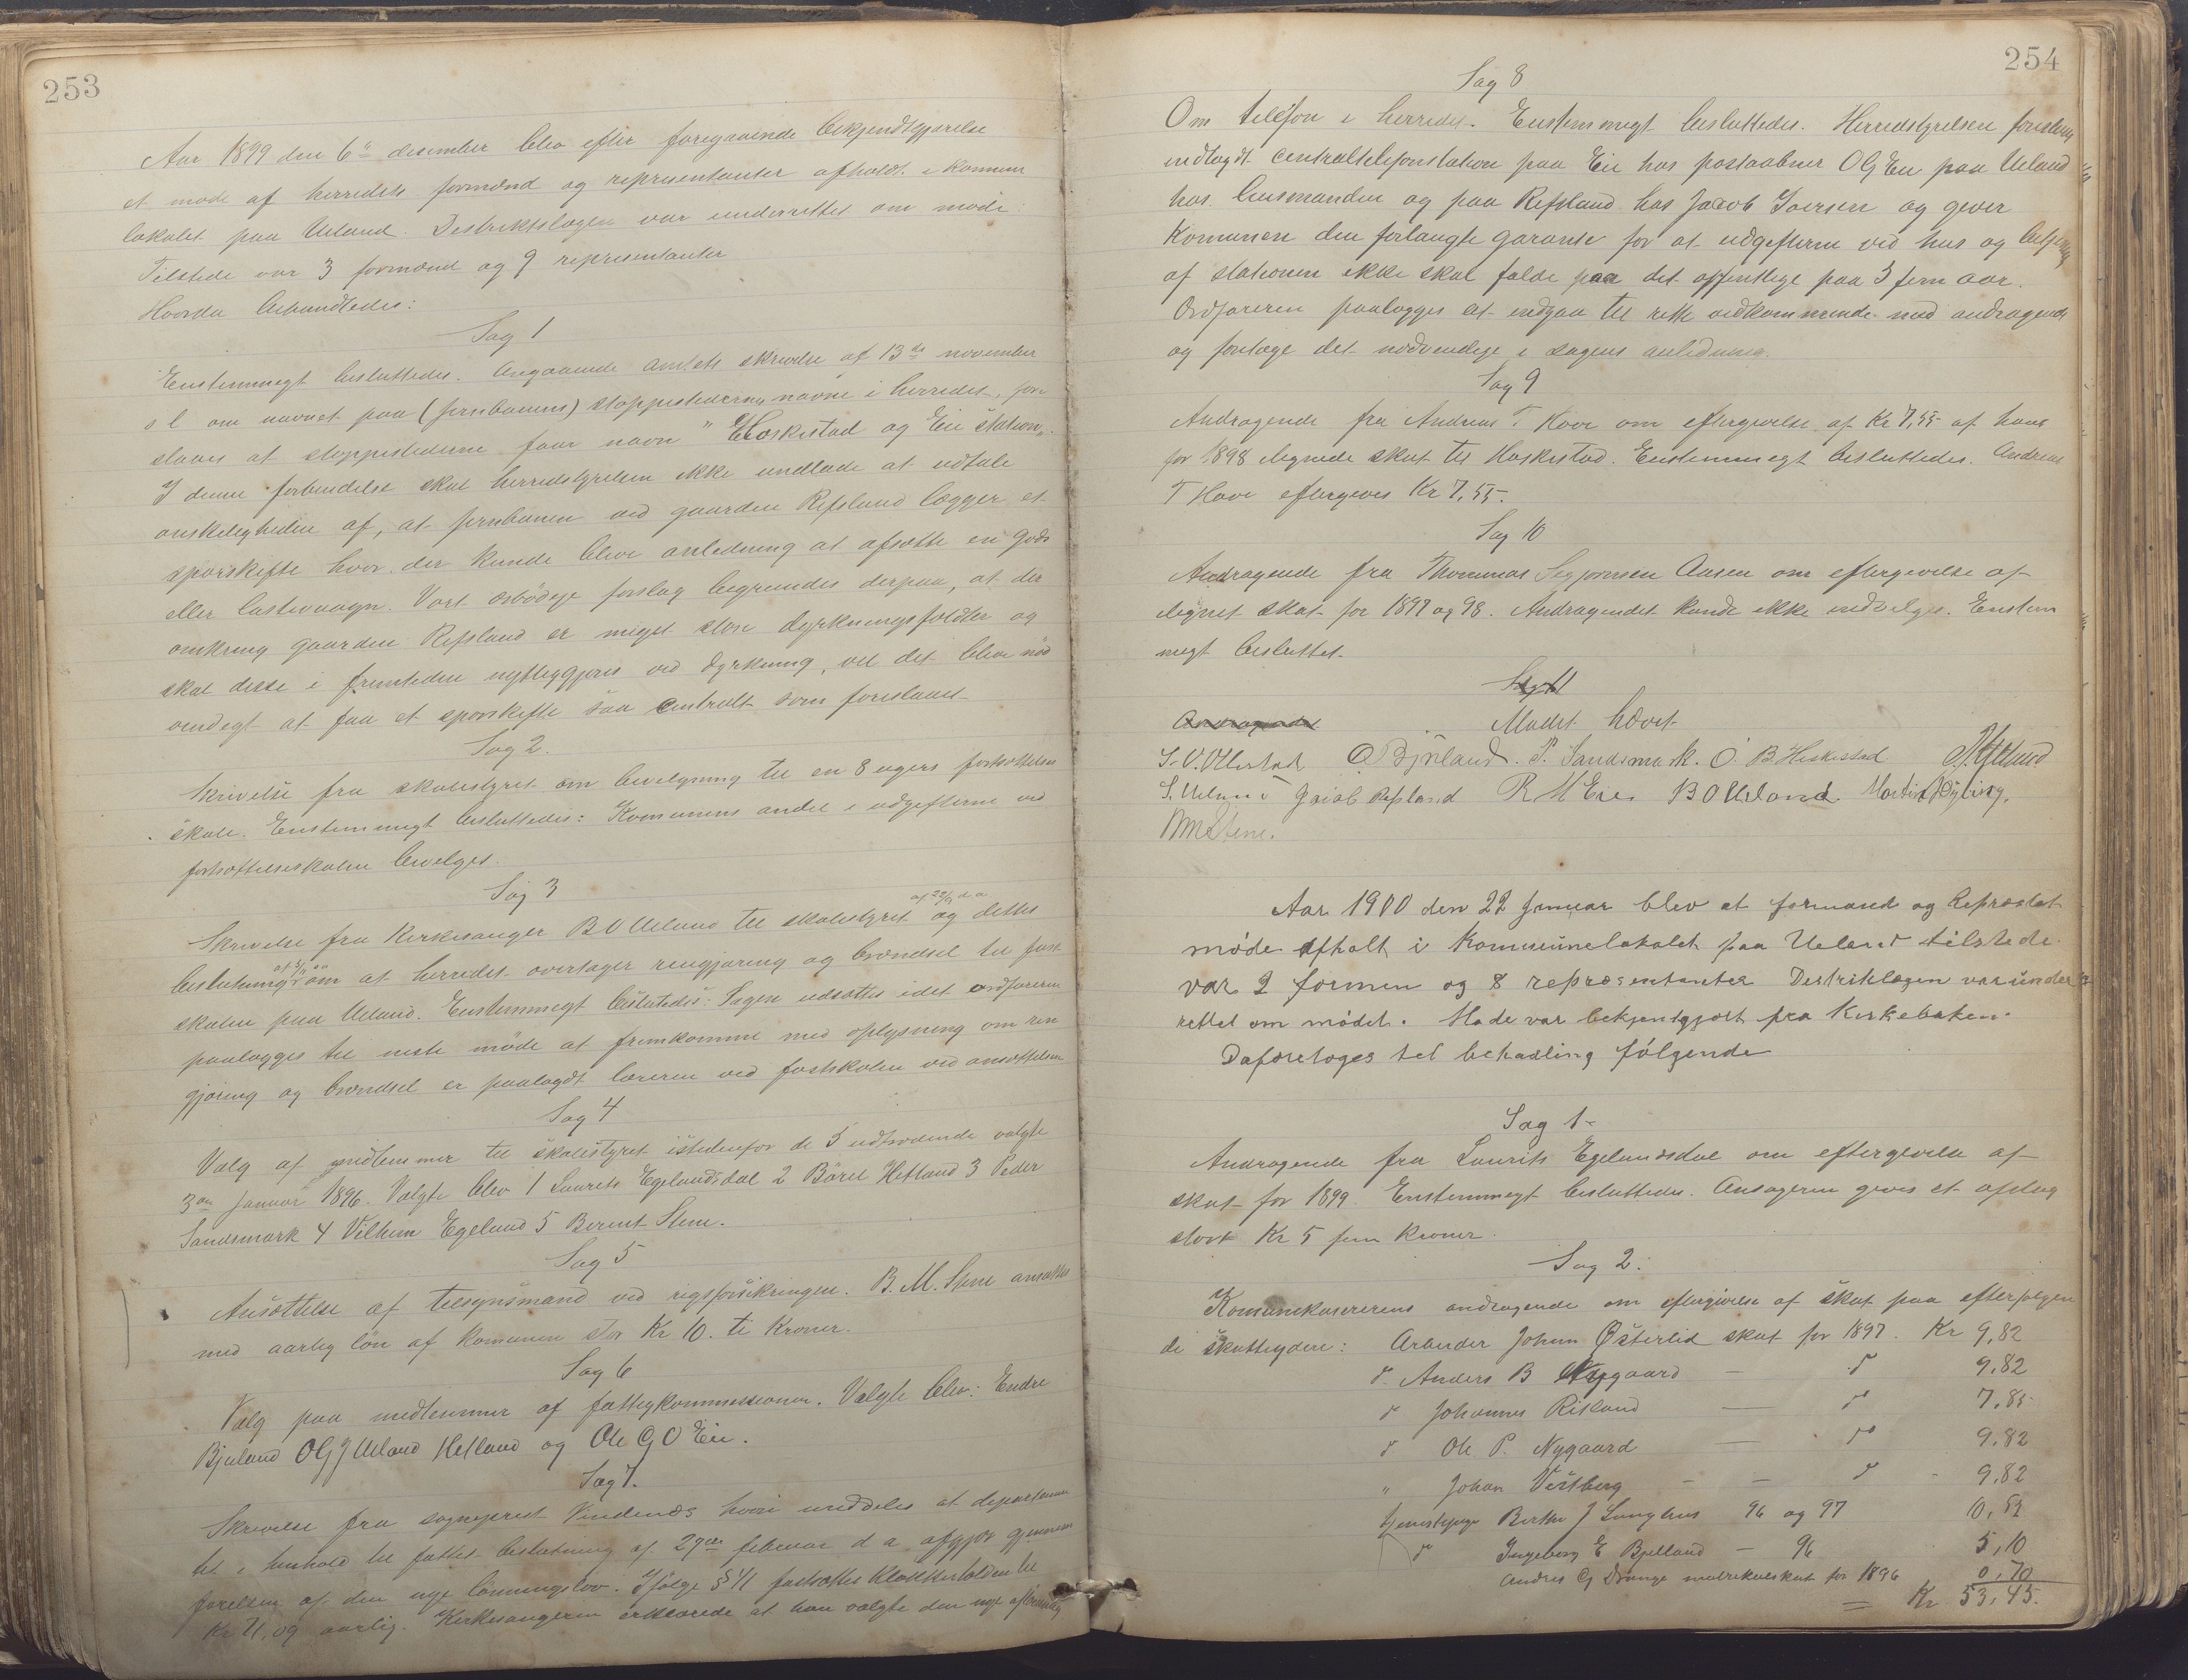 253
Aar 1899 den 6te desember blev efter foregaaende bekjendtgjørelse
et møde af herredets formænd og representanter afholdt i kommune
lokalet paa Ueland. Destriktslægen var underrettet om møde.
Tilstede var 3 formænd og 9 representanter
Hvorda behandledes:
Sag 1
Enstemmegt besluttedes. Angaaende Amtets skrivelse af 13de november
s l om navnet paa (jernbanens) stoppestedernes navne i herredet, fore
slaaes at stoppestederne faar navn "Heskestad og Eie station".
I denne forbindelse skal herredstyrelsen ikke undlade at udtale
ønskeligheden af, at jernbanen ved gaarden Refsland lægger et
sporskifte hvor der kunde blive anledning at afsætte en gods
eller lastevaagn. Vort ærbødige forslag begrundes derpaa, at der
omkring gaarden Refsland er meget store dyrkningsfeldter og
skal disse i fremtiden nyttiggjøres ved dyrkning, vil det blive nød
vendigt at faa et sporskifte saa centralt som foreslaaet
Sag 2.
Skrivelse fra skolestyret om bevilgning til en 8 ugers fortsættelses
skole. Enstemmegt besluttedes: Kommunens andel i udgifterne ved
fortsættelsesskolen bevilges.
Sag 3
Skrivelse fra Kirkesanger B O Ueland til skolestyret af 22/9 d a og dettes
beslutning om at herredet overtager rengjøring og brændsel til fast
skolen paa Ueland. Enstemmegt beslutedes: Sagen udsættes idet ordføreren
paalægges til neste møde at fremkomme med oplysning om ren
gjøring og brændsel er paalagdt læreren ved fastskolen ved ansættelsen
Sag 4
Valg af medlemmer til skolestyret istedenfor de 5 udtrædende valgte
3die januar 1896. Valgte blev 1 Laurits Egelandsdal 2 Børel Hetland 3 Peder
Sandsmark 4 Vilhem Egeland 5 Bernt Stene.
Sag 5
Ansættelse af tilsynsmand ved rigsforsikringen. B. M. Stene ansættes
med aarlig løn af komunen stor Kr 10. ti Kroner.
Sag 6
Valg paa medlemmer af fattigkommissionen. Valgte blev: Endre
Bjuland O G J Ueland Hetland og Ole G O Eie.
Sag 7.
Skrivelse fra sogneprest Vendenæs hvori meddeles at departemen
tet i henhold til fattet beslutning af 27de februar d a afgjør gjennem
førelsen af den nye lønningslov. Ifølge § 11 fastsættes klokkertolden til
Kr 71,09 aarlig. Kirkesangeren erklærede at han valgte den nye aflønning
254
Sag 8
Om telefon i herredet. Enstemmegt besluttedes. Herredstyrelsen foreslaar
indlagdt centraltelefonstation paa Eie hos postaabner O G Eie paa Ueland
hos lensmanden og paa Refsland hos Jacob Iversen og giver
Komunen den forlangte garanti for at udgifterne ved hus og betjening
af stationen ikke skal falde paa det offentlige paa 5 fem aar.
Ordføreren paalægges at indgaa til rette vedkommende med andragende
og foretage det nødvendige i sagens anledning.
Sag 9
Andragende fra Andreas T. Hove om eftergivelse af Kr 7,55 af hans
for 1898 ilignede skat til Heskestad. Enstemmegt besluttedes. Andreas
T Hove eftergives Kr 7,55.
Sag 10
Andragende fra Thommas Segjørnsen Aasen om eftergivelse af
ilignet skat for 1897 og 98. Andragendet kunde ikke indvilges. Enstem
megt besluttet.
Sag 11
Andragendet Mødet hævet.
S. O. Ollestad O Bjuland. P. Sandsmark. O. B. Heskestad
S. Ueland Jacob Refsland R M Eie. B O Ueland Martin Dybing.
B M Stene.
Aar 1900 den 22 Januar blev et formand og Representat
møde afholt i Kommunelokalet paa Ueland tilstede
var 2 formen og 8 repræsentanter Destriklægen var under
rettet om mødet. Møde var bekjentgjort fra Kirkebaken.
Da foretoges tel behadling følgende
Sag 1.
Andragende fra Laurits Egelandsdal om eftergivelse af
skat for 1899. Enstemmegt besluttedes. Ansøgeren gives et afslag
stort Kr 5 fem kroner.
Sag 2.
Komunekasererens andragende om eftergivelse af skat paa efterfølgen
de skatteydere: Arbeider Johan Østerlid skat for 1897. Kr 9,82
" Anders B Nygaard — " 9,82
" Johannes Risland — " 7,85
" Ole P. Nygaard — " 9,82
" Johan Vestberg — — " 9,82
Tjenestepige Berthe J Lunghus 96 og 97 0,52
" Ingeborg E Bjelland — 96 5,10
Andres G Drange matrikulskat for 1896 0,70
= Kr 53,45.